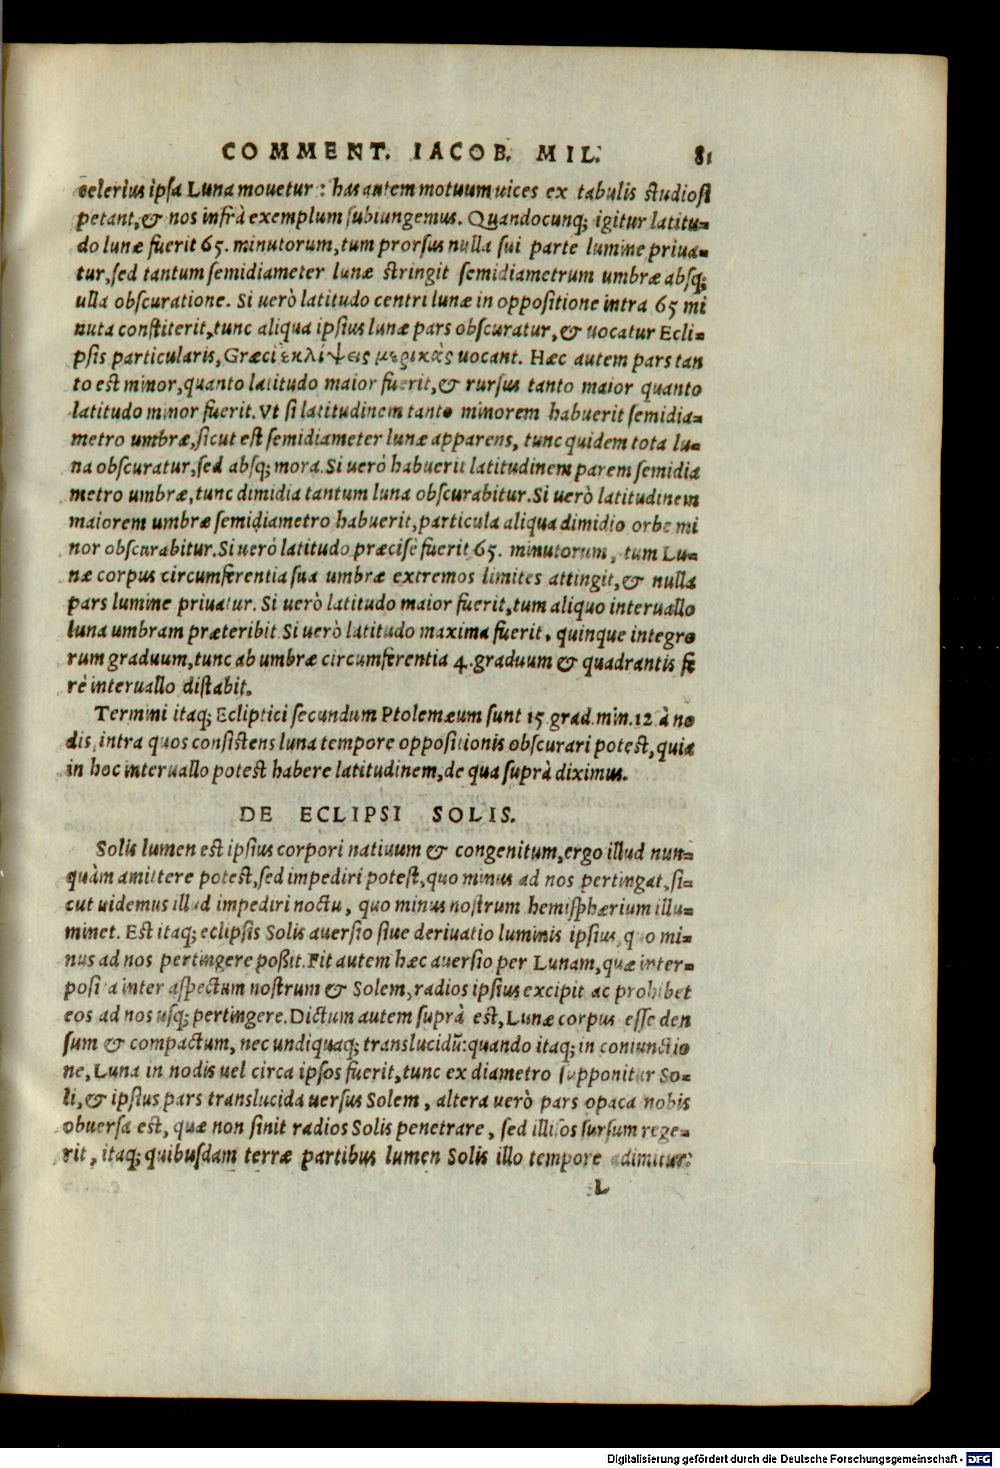 COMMENT. IACOB. MIL. 81
celerius ipsa Luna mouetur: has autem motuum uices ex tabulis studiosi
petant, & nos infrà exemplum subiungemus. Quandocunq; igitur latitu-
do lunæ fuerit 65. minutorum, tum prorsus nulla sui parte lumine priua-
tur, sed tantum semidiameter lunæ stringit semidiametrum umbræ absq;
ulla obscuratione. Si uerò latitudo centri lunæ in oppositione intra 65 mi
nuta constiterit, tunc aliqua ipsius lunæ pars obscuratur, & uocatur Ecli-
psis particularis, Græci ἐκλίψεις μερικὰς uocant. Hæc autem pars tan
to est minor, quanto latitudo maior fuerit, & rursus tanto maior quanto
latitudo minor fuerit. Vt si latitudinem tanto minorem habuerit semidia-
metro umbræ, sicut est semidiameter lunæ apparens, tunc quidem tota lu-
na obscuratur, sed absq; mora. Si uerò habuerit latitudinem parem semidia
metro umbræ, tunc dimidia tantum luna obscurabitur. Si uerò latitudinem
maiorem umbræ semidiametro habuerit, particula aliqua dimidio orbe mi
nor obscurabitur. Si uerò latitudo præcisè fuerit 65. minutorum, tum Lu-
næ corpus circumferentia sua umbræ extremos limites attingit, & nulla
pars lumine priuatur. Si uerò latitudo maior fuerit, tum aliquo interuallo
luna umbram præteribit. Si uerò latitudo maxima fuerit, quinque integro
rum graduum, tunc ab umbræ circumferentia 4. graduum & quadrantis fe
rè interuallo distabit.
Termini itaq; Ecliptici secundum Ptolemæum sunt 15 grad. min. 12 à no
dis, intra quos consistens luna tempore oppositionis obscurari potest, quia
in hoc interuallo potest habere latitudinem, de qua suprà diximus.
DE ECLIPSI SOLIS.
Solis lumen est ipsius corpori natiuum & congenitum, ergo illud nun-
quàm amittere potest, sed impediri potest, quo minus ad nos pertingat, si-
cut uidemus illud impediri noctu, quo minus nostrum hemisphærium illu-
minet. Est itaq; eclipsis Solis auersio siue deriuatio luminis ipsius, quo mi-
nus ad nos pertingere poßit. Fit autem hæc auersio per Lunam, quæ inter-
posita inter aspectum nostrum & Solem, radios ipsius excipit ac prohibet
eos ad nos usq; pertingere. Dictum autem suprà est, Lunæ corpus esse den
sum & compactum, nec undiquaq; translucidũ: quando itaq; in coniunctio
ne, Luna in nodis uel circa ipsos fuerit, tunc ex diametro supponitur So-
li, & ipsius pars translucida uersus Solem, altera uerò pars opaca nobis
obuersa est, quæ non sinit radios Solis penetrare, sed illos sursum rege-
rit, itaq; quibusdam terræ partibus lumen Solis illo tempore adimitur:
L
Digitalisierung gefördert durch die Deutsche Forschungsgemeinschaft - DFG